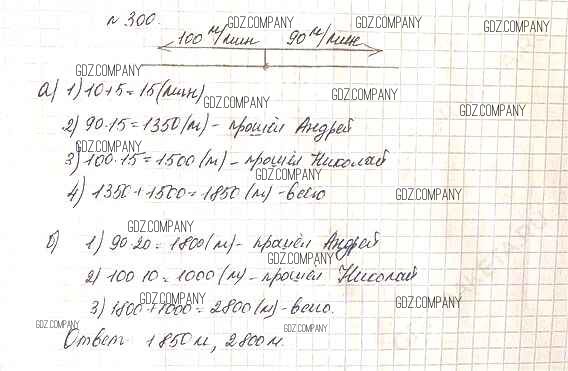 № 300.
GDZ.COMPANY GDZ.COMPANY GDZ.COMPANY
100 м/мин 90 м/мин
GDZ.COMPANY
а) 1) 10+5=15(мин)
GDZ.COMPANY GDZ.COMPANY GDZ.COMPANY
2) 90·15=1350(м)- прошёл Андрей
GDZ.COMPANY
3) 100·15=1500(м)- прошёл Николай
GDZ.COMPANY
4) 1350+1500=1850(м)-всего
GDZ.COMPANY
GDZ.COMPANY
б) 1) 90·20=1800(м)- прошёл Андрей
GDZ.COMPANY
2) 100·10=1000(м)- прошёл Николай
GDZ.COMPANY GDZ.COMPANY
3) 1800+1000=2800(м)-всего.
GDZ.COMPANY GDZ.COMPANY
Ответ: 1850м, 2800м.